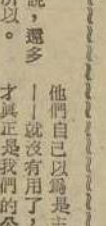 他們自己以爲是主
——就沒有用了，
才眞正是我們的公
說，還多
所以。